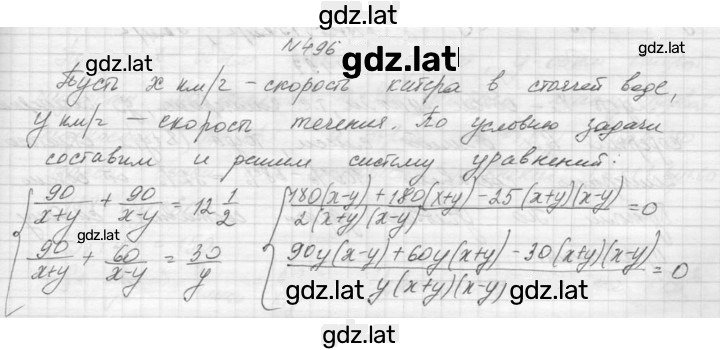 gdz.lat
№496
gdz.lat
gdz.lat
Пусть x км/г – скорость катера в стоячей воде,
y км/г – скорость течения. По условию задачи
составим и решим систему уравнений:
{ 90/(x+y) + 90/(x-y) = 12 1/2 { (180(x-y) + 180(x+y) - 25(x+y)(x-y))/(2(x+y)(x-y)) = 0
gdz.lat
{ 90/(x+y) + 60/(x-y) = 30/y { (90y(x-y) + 60y(x+y) - 30(x+y)(x-y))/(y(x+y)(x-y)) = 0
gdz.lat
gdz.lat
gdz.lat
gdz.lat